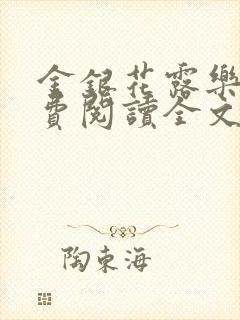 金銀花露樂
費閱讀全文
陶東海